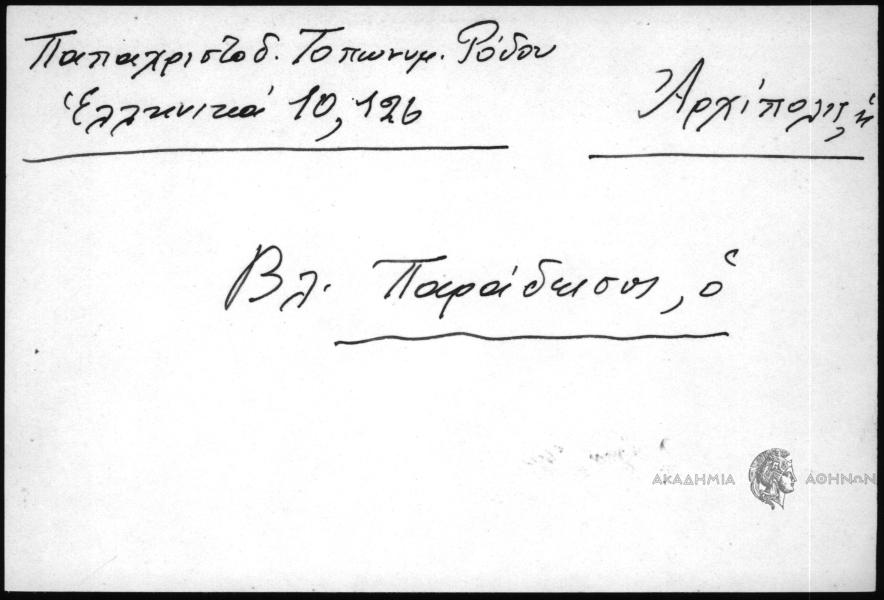 Παπαχριστοδ. Τοπωνυμ. Ρόδου
Ἑλληνικά 10, 126
Ἀρχίπολις, ἡ
Βλ. Παράδεισος, ὁ
ΑΚΑΔΗΜΙΑ ΑΘΗΝΩΝ